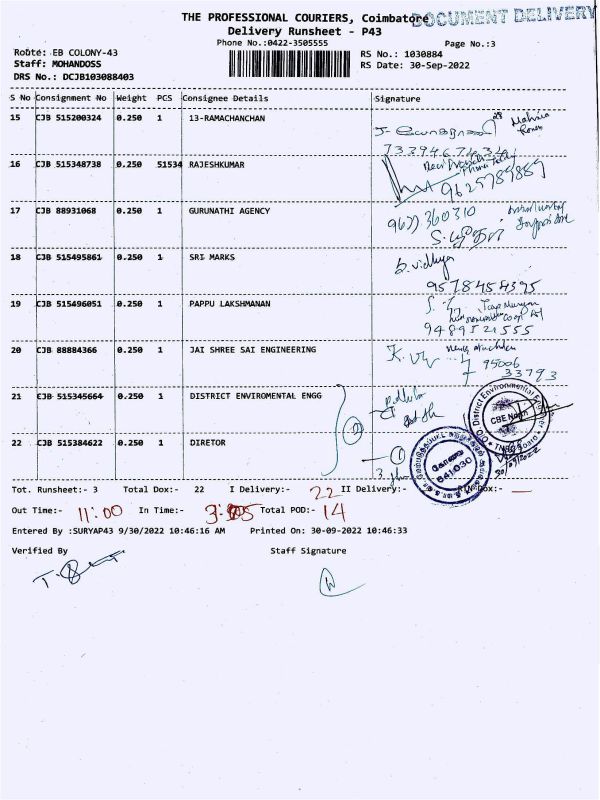 THE PROFESSIONAL COURIERS, Coimbatore
DOCUMENT DELIVERY
Delivery Runsheet - P43
Phone No.:0422-3505555
Page No.:3
Route: EB COLONY-43
RS No.: 1030884
Staff: MOHANDOSS
RS Date: 30-Sep-2022
DRS No.: DCJB103088403
S No Consignment No Weight PCS Consignee Details Signature
15 CJB 515200324 0.250 1 13-RAMACHANCHAN
16 CJB 515348738 0.250 51534 RAJESHKUMAR
9629789889
17 CJB 88931068 0.250 1 GURUNATHI AGENCY
9677360310
18 CJB 515495861 0.250 1 SRI MARKS
B.vidhya
9578454395
19 CJB 515496051 0.250 1 PAPPU LAKSHMANAN
9489521555
20 CJB 88884366 0.250 1 JAI SHREE SAI ENGINEERING
95006
33793
21 CJB 515345664 0.250 1 DISTRICT ENVIROMENTAL ENGG
2
O/O District Environmental Engineer
CBE North
22 CJB 515384622 0.250 1 DIRETOR
1
கோவை
641030
30/9/2022
Tot. Runsheet:- 3 Total Dox:- 22 I Delivery:- 22 II Delivery:- RTN Dox:- —
Out Time:- 11:00 In Time:- 3:05 Total POD:- 14
Entered By :SURYAP43 9/30/2022 10:46:16 AM Printed On: 30-09-2022 10:46:33
Verified By Staff Signature